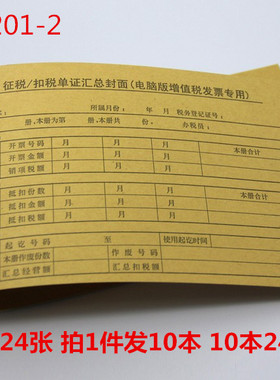 201-2
征税/扣税单证汇总封面(电脑版增值税发票专用)
: 所属月份: 年 月 税务登记证号:
册,本册为第 册,本册共 份。 办税员:
开票号码 月 月 月 本册合计
开票金额 月 月 月
销项税额 月 月 月
抵扣份数 月 月 月 本册合计
抵扣金额 月 月 月
抵扣税额 月 月 月
起讫号 至 使用起讫时间
本册作废份数 作废号码
汇总经营额 汇总扣税额
24张 拍1件发10本 10本24